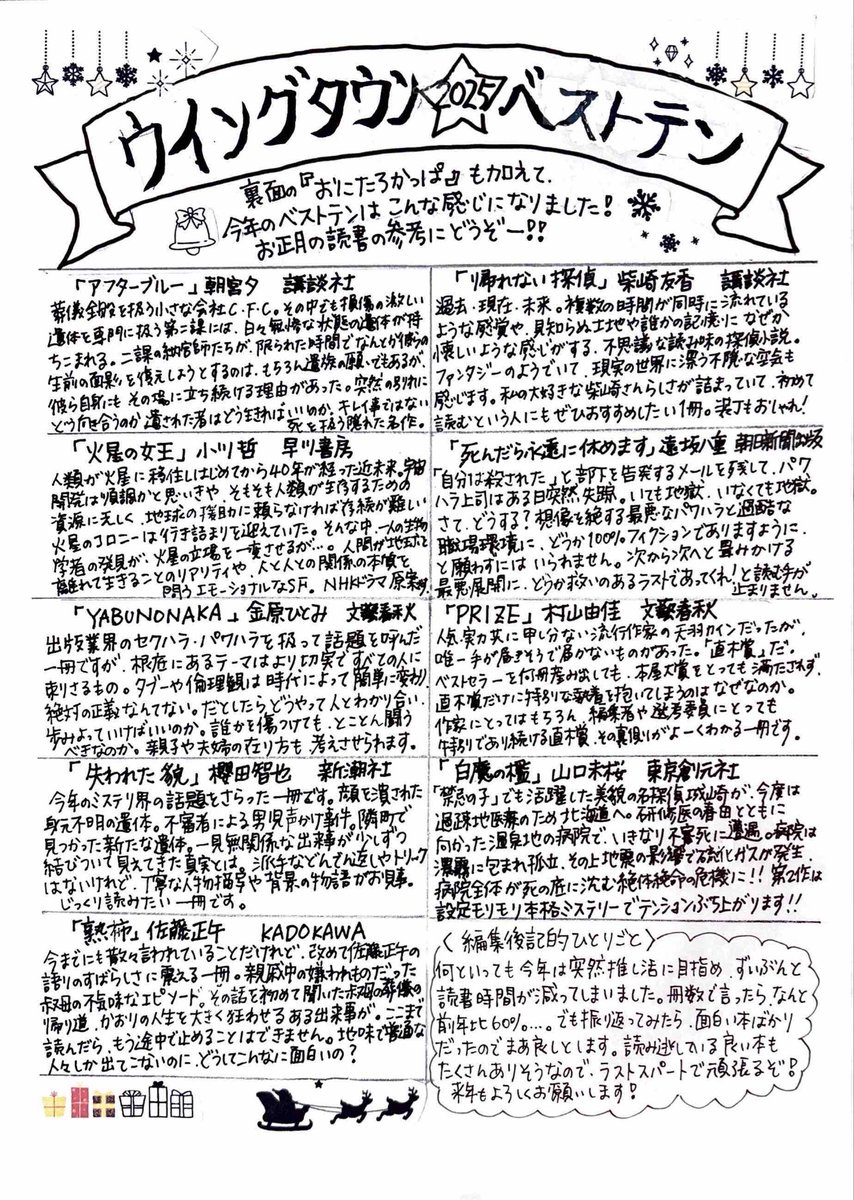 ウイングタウン 2025 ベストテン
裏面の『おにたろかっぱ』も加えて、
今年のベストテンはこんな感じになりました!
お正月の読書の参考にどうぞー!!
「アフターブルー」朝宮夕 講談社
葬儀全般を扱う小さな会社C.F.C。その中でも損傷の激しい
遺体を専門に扱う第二課には、日々無惨な状態の遺体が持
ちこまれる。二課の納棺師たちが、限られた時間でなんとか彼らの
生前の面影を復元しようとするのは、もちろん遺族の願いでもあるが、
彼ら自身にもその場に立ち続ける理由があった。突然の別れに
どう向き合うのか、遺された者はどう生きればいいのか。キレイ事ではない
死を扱う隠れた名作。
「火星の女王」小川哲 早川書房
人類が火星に移住しはじめてから40年が経った近未来。宇宙
開発は順調かと思いきや、そもそも人類が生存するための
資源に乏しく、地球の援助に頼らなければ存続が難しい
火星のコロニーは行き詰まりを迎えていた。そんな中、一人の生物
学者の発見が、火星の立場を一変させるが…。人間が地球を
離れて生きることのリアリティや、人と人との関係の本質を
問うエモーショナルなSF。NHKドラマ原案
「YABUNONAKA」金原ひとみ 文藝春秋
出版業界のセクハラ・パワハラを扱って話題を呼んだ
一冊ですが、根底にあるテーマはより切実ですべての人に
刺さるもの。タブーや倫理観は時代によって簡単に変わり、
絶対の正義なんてない。だとしたらどうやって人とわかり合い、
歩みよっていけばいいのか。誰かを傷つけても、とことん闘う
べきなのか。親子や夫婦の在り方も考えさせられます。
「失われた貌」櫻田智也 新潮社
今年のミステリ界の話題をさらった一冊です。顔を潰された
身元不明の遺体。不審者による男児声かけ事件。隣町で
見つかった新たな遺体。一見無関係な出来事が少しずつ
結びついて見えてきた真実とは。派手などんでん返しやトリック
はないけれど、丁寧な人物描写や背景の物語がお見事。
じっくり読みたい一冊です。
「熟柿」佐藤正午 KADOKAWA
今までにも散々言われていることだけれど、改めて佐藤正午の
語りのすばらしさに震える一冊。親戚中の嫌われものだった
叔母の不気味なエピソード。その話を初めて聞いた叔母の葬儀の
帰り道、かおりの人生を大きく狂わせるある出来事が。ここまで
読んだら、もう途中で止めることはできません。地味で普通な
人々しか出てこないのに、どうしてこんなに面白いの?
「帰れない探偵」柴崎友香 講談社
過去・現在・未来。複数の時間が同時に流れている
ような感覚や、見知らぬ土地や誰かの記憶になぜか
懐しいような感じがする、不思議な読み味の探偵小説。
ファンタジーのようでいて、現実の世界に漂う不穏な空気も
感じます。私の大好きな柴崎さんらしさが詰まっていて、初めて
読むという人にもぜひおすすめしたい1冊。装丁もおしゃれ!
「死んだら永遠に休めます」遠坂八重 朝日新聞出版
「自分は殺された」と部下を告発するメールを残して、パワ
ハラ上司はある日突然、失踪。いても地獄、いなくても地獄。
さて、どうする?想像を絶する最悪なパワハラと過酷な
職場環境に、どうか100%フィクションでありますように、
と願わずにはいられません。次から次へと畳みかける
最悪展開に、どうか救いのあるラストであってくれ!と読む手が
止まりません。
「PRIZE」村山由佳 文藝春秋
人気・実力共に申し分ない流行作家の天羽カインだったが、
唯一手が届きそうで届かないものがあった。「直木賞」だ。
ベストセラーを何冊産み出しても、本屋大賞をとっても満たされず、
直木賞だけに特別な執着を抱いてしまうのはなぜなのか。
作家にとってはもちろん、編集者や選考委員にとっても
特別であり続ける直木賞、その裏側がよーくわかる一冊です。
「白魔の檻」山口未桜 東京創元社
「禁忌の子」でも活躍した美貌の名探偵城崎が、今度は
過疎地医療のため北海道へ。研修医の春田とともに
向かった温泉地の病院で、いきなり不審死に遭遇。病院は
濃霧に包まれ孤立、その上地震の影響で硫化ガスが発生、
病院全体が死の底に沈む絶体絶命の危機に!!第2作は
設定モリモリ本格ミステリーでテンションぶち上がります!!
〈編集後記的ひとりごと〉
何といっても今年は突然推し活に目指め、ずいぶんと
読書時間が減ってしまいました。冊数で言ったら、なんと
前年比60%…。でも振り返ってみたら、面白い本ばかり
だったのでまあ良しとします。読み逃している良い本も
たくさんありそうなので、ラストスパートで頑張るぞ!
来年もよろしくお願いします!